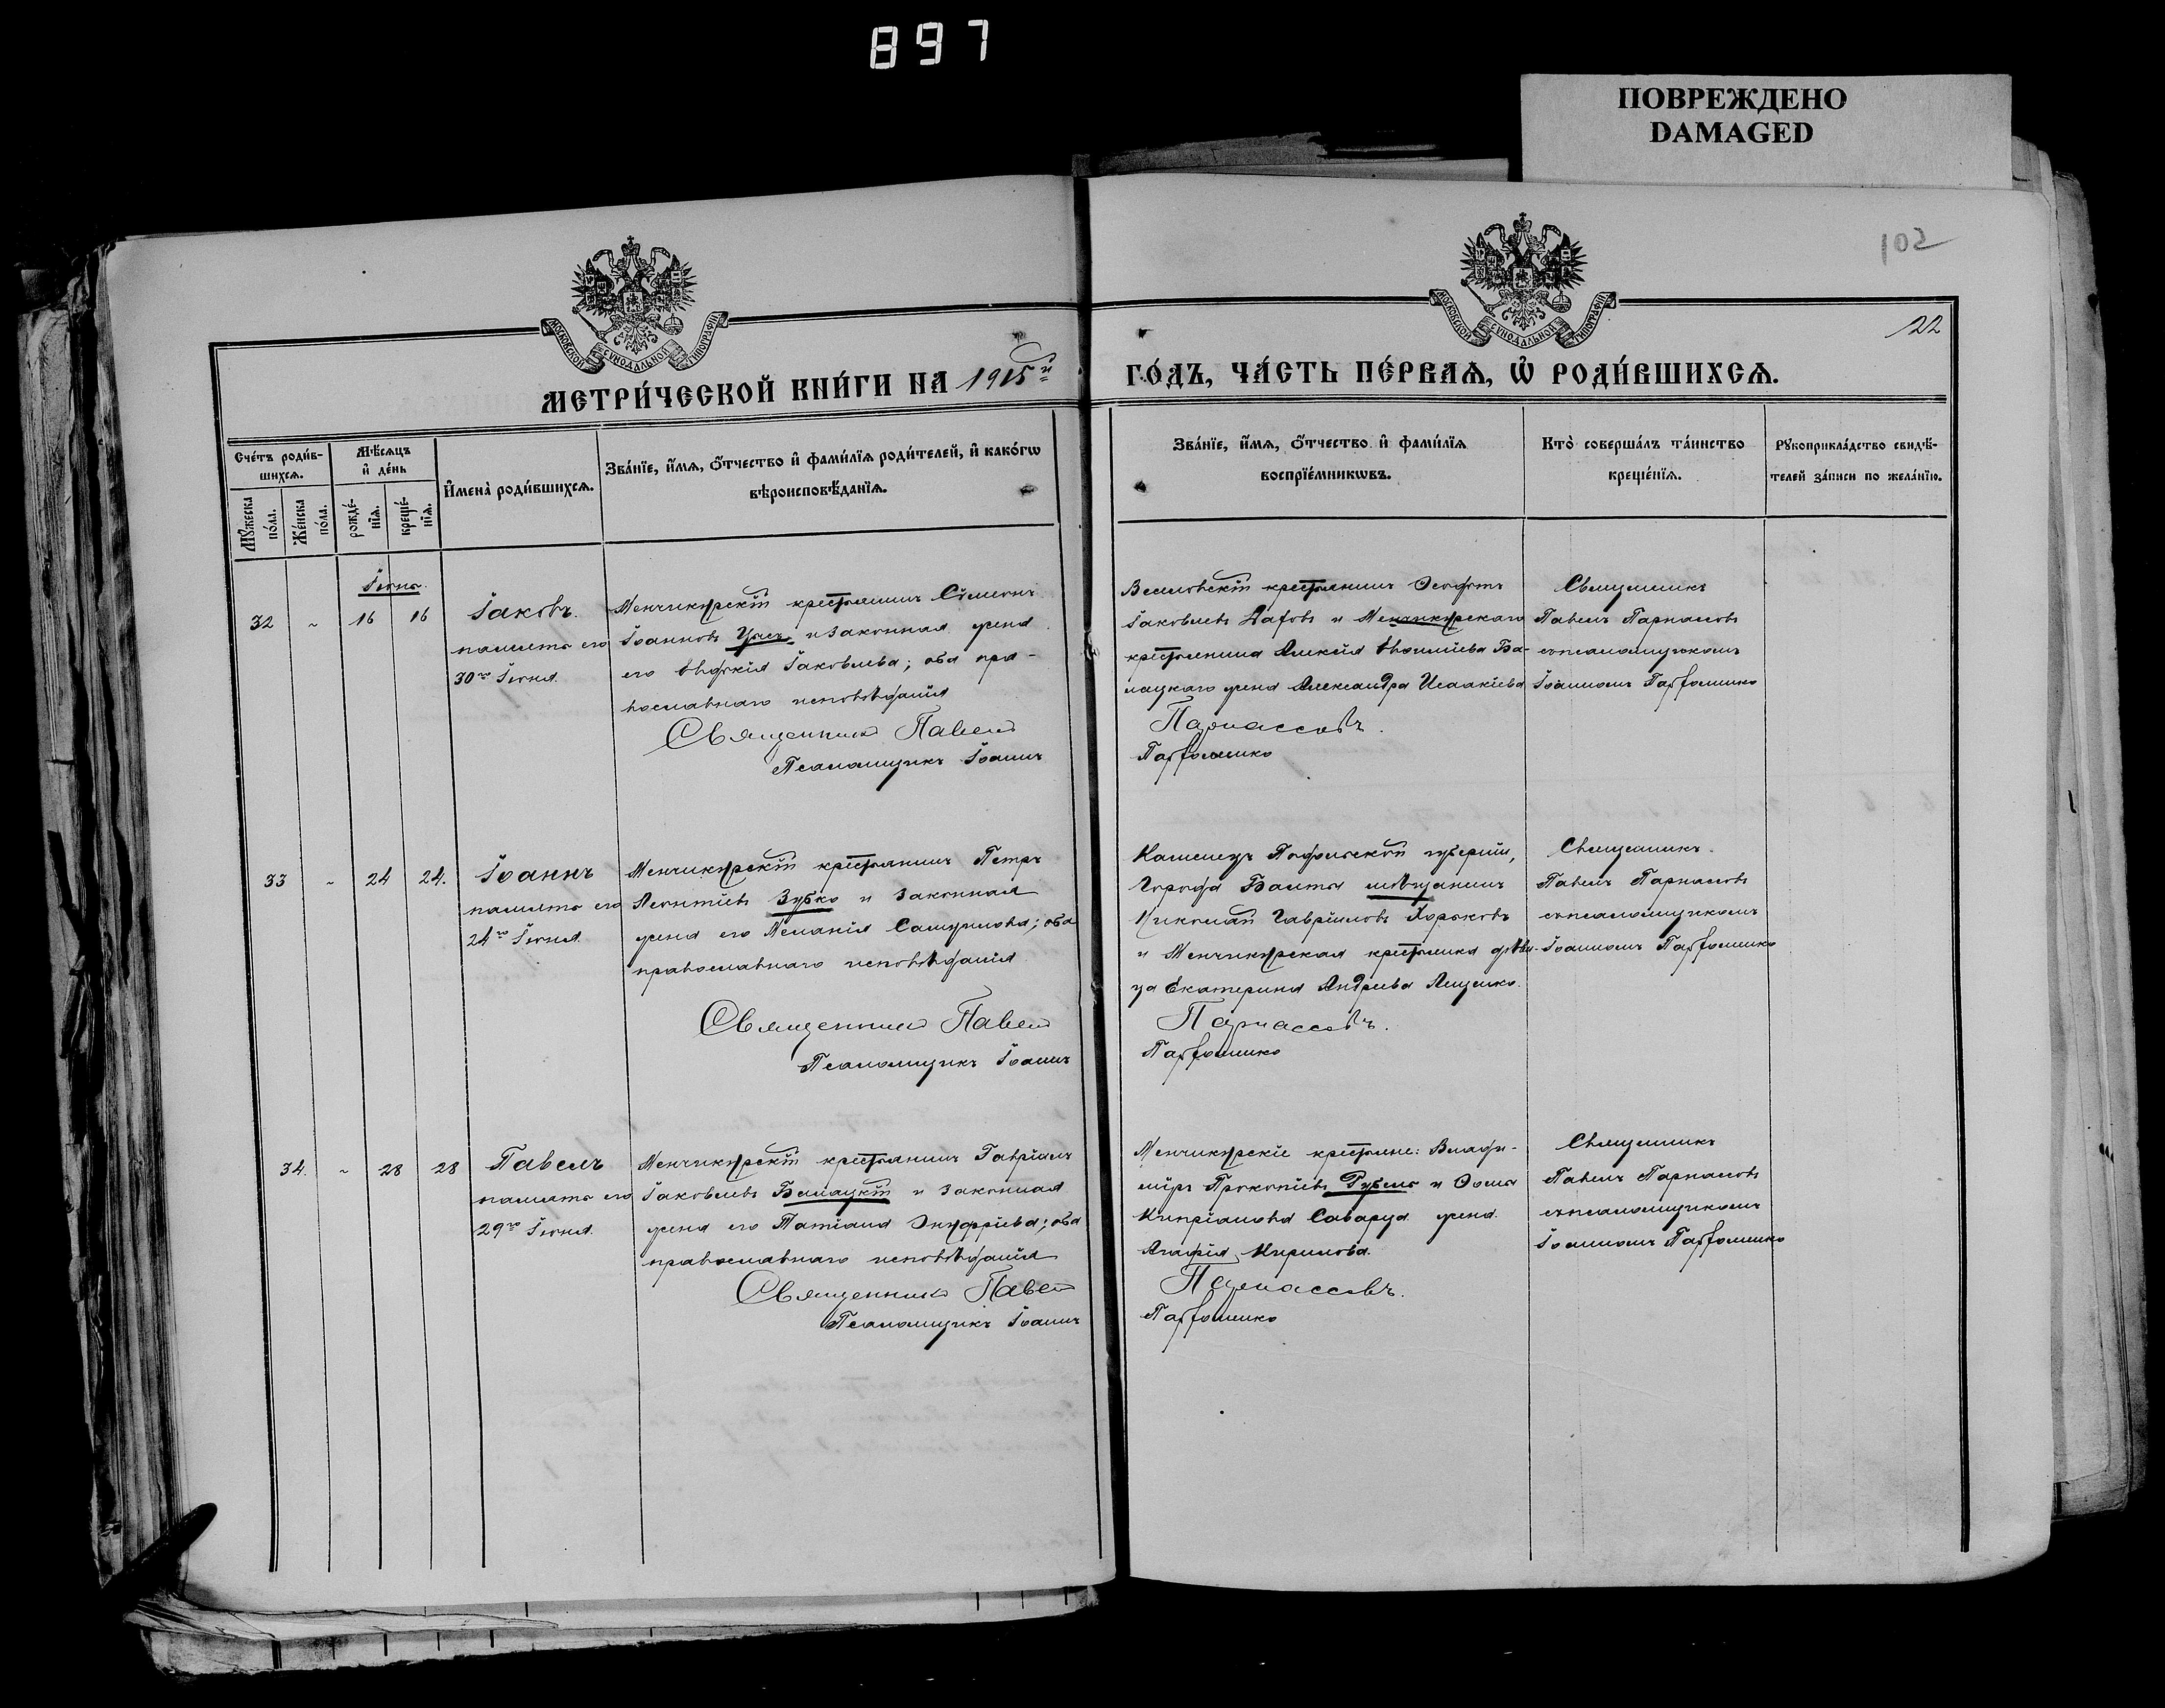 897
ПОВРЕЖДЕНО
DAMAGED
102
22
МОСКОВСКОЙ СѴНОДАЛЬНОЙ ТИПОГРАФІИ
МОСКОВСКОЙ СѴНОДАЛЬНОЙ ТИПОГРАФІИ
МЕТРИ́ЧЕСКОЙ КНИ́ГИ НА 1915й
ГО́ДЪ, ЧА́СТЬ ПЕ́РВАѦ, Ѡ҆ РОДИ́ВШИХСѦ.
Сче́тъ роди́в-
шихсѧ.
Мꙋ́жеска по́ла.
Же́нска по́ла.
Мѣ́сѧцъ
и҆ де́нь
рожде́-
нїѧ.
креще́-
нїѧ.
И҆мена̀ роди́вшихсѧ.
Зва́нїе, и҆́мѧ, ѻ҆́тчество и҆ фами́лїѧ роди́телей, и҆ како́гѡ
вѣроисповѣ́данїѧ.
Зва́нїе, и҆́мѧ, ѻ҆́тчество и҆ фами́лїѧ
воспрїе́мникѡвъ.
Кто̀ соверша́лъ та́инство
креще́нїѧ.
Рꙋкоприкла́дство свидѣ́-
телей за́писи по жела́нїю.
Іюнь
32 ~ 16 16
Іаковъ.
память его
30го Іюня.
Менчикурскій крестьянинъ Сѵмеонъ
Іоанновъ и законная жена
его Іаковлева; оба пра-
вославнаго исповѣданія
Священникъ Павелъ
Псаломщикъ Іоаннъ
крестьянинъ
Іаковлевъ и Менчикурскаго
крестьянина Алексія Ба-
лацкаго жена Александра Исаакіева
Парнассовъ.
Парфоменко
Священникъ
Павелъ Парнассовъ
съ псаломщикомъ
Іоанномъ Парфоменко
33 ~ 24 24.
Іоаннъ
память его
24го Іюня
Менчикурскій крестьянинъ Петръ
Леонтіевъ Зубко и законная
жена его Меланія Самуилова; оба
православнаго исповѣданія
Священникъ Павелъ
Псаломщикъ Іоаннъ
Каменецъ Подольской губерніи,
города Балты мѣщанинъ
Николай Гавріиловъ Хорьковъ
и Менчикурская крестьянка дѣви-
ца Екатерина Андреева Лященко.
Парнассовъ.
Парфоменко
Священникъ
Павелъ Парнассовъ
съ псаломщикомъ
Іоанномъ Парфоменко
34. ~ 28 28
Павелъ
память его
29го Іюня.
Менчикурскій крестьянинъ Гавріилъ
Іаковлевъ Балацкій и законная
жена его Татіана Онуфріева; оба
православнаго исповѣданія
Священникъ Павелъ
Псаломщикъ Іоаннъ
Менчикурскіе крестьяне: Влади-
міръ Прокопіевъ и Ѳома
Кипріанова жена
Агафія Кирилова.
Парнассовъ.
Парфоменко
Священникъ
Павелъ Парнассовъ
съ псаломщикомъ
Іоанномъ Парфоменко